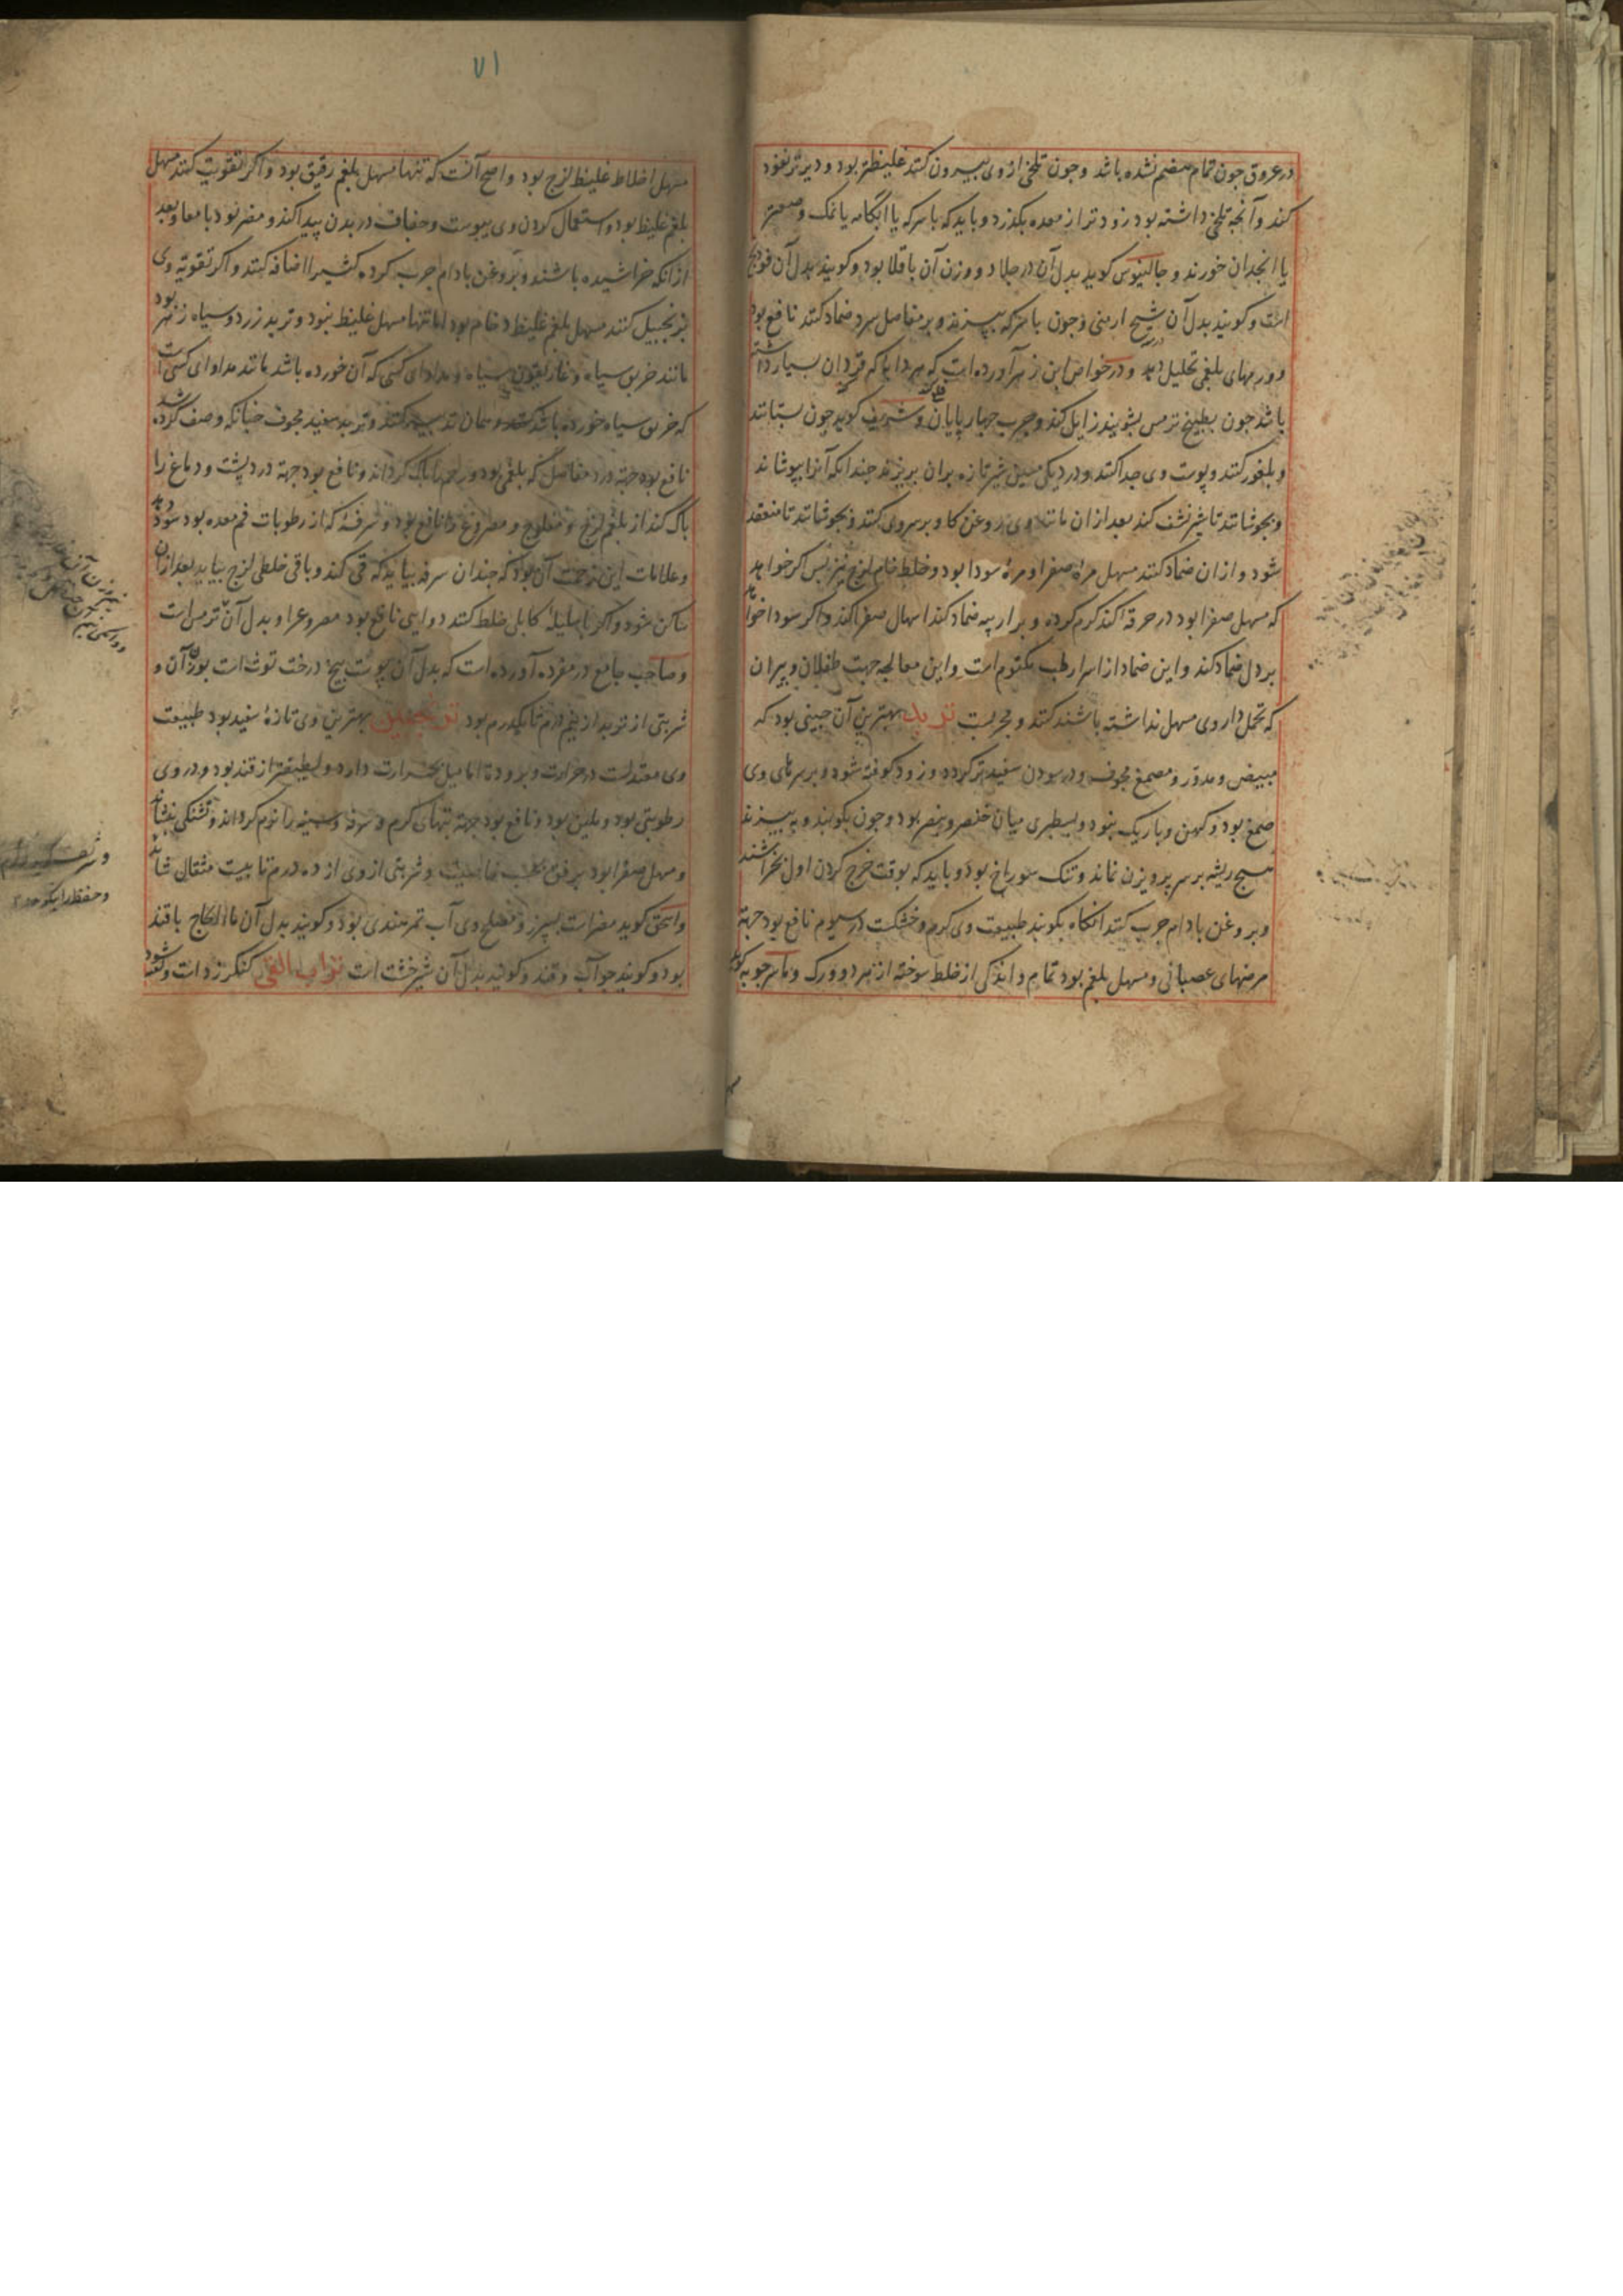 در عروق جون تمام هضم نشده باشد وجون تلخی از وی بیرون کنند غلیظتر بود و دیرتر نفوذ
کند وآنجه تلخی داشته بود زودتر از معده بکذرد و باید که با سرکه یا ابکامه یا نمک و صعتر
یا انجدان خورند و جالینوس کوید بدل آن در جلا دو وزن آن باقلا بود وکویند بدل آن فودنج
است وکویند بدل آن شیح ارمنی وجون با سرکه بپزند و بر مفاصل سرد ضماد کنند نافع بود
و ورمهای بلغمی تحلیل دهد و در خواص ابن زهر آورده است که هر دابه که قردان بسیار داشته
باشد جون بطبیخ ترمس بشویند زایل کند وجرب جهار پایان وشریف کوید جون بستانند
و بلغور کنند وپوست وی جدا کنند ودر دیکی مسین شیر تازه بران بریزند جندانکه آنرا بپوشاند
و بجوشانند تا شیر نشف کند بعد از ان مانند وی روغن کاو بر سر وی کنند و بجوشانند تا منعقد
شود و از ان ضماد کنند مسهل مرۀ صفرا و مرۀ سودا بود وخلط خام لزج نیز بس اکر خواهد
که مسهل صفرا بود در خرقه افکند کرم کرده و بر ضماد کند اسهال صفرا کند و اکر سودا خواهد
بر دل ضماد کند و این ضماد از اسرار طب مکتوم است واین معالجه جهت طفلان و پیران
که تحمل داروی مسهل نداشته باشند کنند و مجربست تربد بهترین آن جینی بود که
مبیض و مدور و مصمغ مجوف ودر سودن سفیدتر کرده و زود کوفته شود و بر سرهای وی
صمغ بود و کهن و باریک نبود و بسطبری میان خنصر و بنصر بود وجون بکوبند و به بیزند
هیج ریشه بر سر پرویزن نماند و تنک سوراخ بود و باید که بوقت خرج کردن اول بخراشند
و بروغن بادام جرب کنند انکاه بکوبند طبیعت وی کرم وخشکست در سیوم نافع بود جهة
مرضهای عصبانی و مسهل بلغم بود تمام و اندکی از خلط سوخته از هر دو ورک و ماسرجویه کوید
۷۱
مسهل اخلاط غلیظ لزج بود و اصح آنست که تنها مسهل بلغم رقیق بود و اکر تقویت کنند مسهل
بلغم غلیظ بود و استعمال کردن وی یبوست و جفاف در بدن پیدا کند و مضر بود بامعا وبعد
از انکه خراشیده باشند و بروغن بادام جرب کرده کثیرا اضافه کنند و اکر تقویه وی
بزنجبیل کنند مسهل بلغم غلیظ و خام بود اما تنها مسهل غلیظ نبود و تربد زرد و سیاه زهر بود
مانند خربق سیاه و غاریقون سیاه و مداوای کسی که آن خورده باشد مانند مداوای کسی است
که خربق سیاه خورده باشد و تربد سفید مجوف جنانکه وصف کرده شد
نافع بود جهة درد مفاصل که بلغمی بود و رحم را پاک کرداند و نافع بود جهة درد پشت و دماغ را
پاک کند از بلغم لزج و مفلوج و مصروع را نافع بود و سرفۀ که از رطوبات فم معده بود سود دهد
و علامات این زحمت آن بود که جندان سرفه بیاید که قی کند و باقی خلطی لزج بیاید بعد از ان
ساکن شود و اکر با هلیلۀ کابلی خلط کنند دوایی نافع بود مصروع را و بدل آن ترمس است
و صاحب جامع در مفرده آورده است که بدل آن پوست بیخ درخت توث است بوزن آن و
شربتی از تربد از نیم درم تا یکدرم بود ترنجبین بهترین وی تازۀ سفید بود طبیعت
وی معتدلست در حرارت و برودت اما میل بحرارت دارد و لطیفتر از قند بود و در وی
رطوبتی بود و ملین بود و نافع بود جهة تبهای کرم و سرفه وسینه را نرم کرداند و تشنکی بنشاند
و مسهل صفرا بود برفق و شربتی از وی از ده درم تا بیست مثقال شاید
واسحق کوید مضر است بسپرز و مصلح وی آب تمر هندی بود و کویند بدل آن با قند
بود و کویند جو آب و قند و کویند بدل آن شیرخشت است تراب القی کنکرزد است وکفته شود